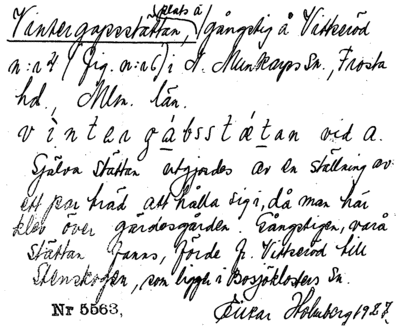 Vintergapsstättan, (plats å) gångstig å Vittseröd
n:r 24 (fig. n:r 6) i N. Munkarps Sn., Frosta
hd., Mlm. län.
vìntergábsstǽtan vid a.
Själva stättan utgjordes av en ställning av
ett par träd att hålla sig i, då man här
klev över gärdesgården. Gångstigen, varå
stättan fanns, förde fr. Vittseröd till
Stenskogen, som ligger i Bosjöklosters Sn.
Nr 5563,
Holmberg 1927.